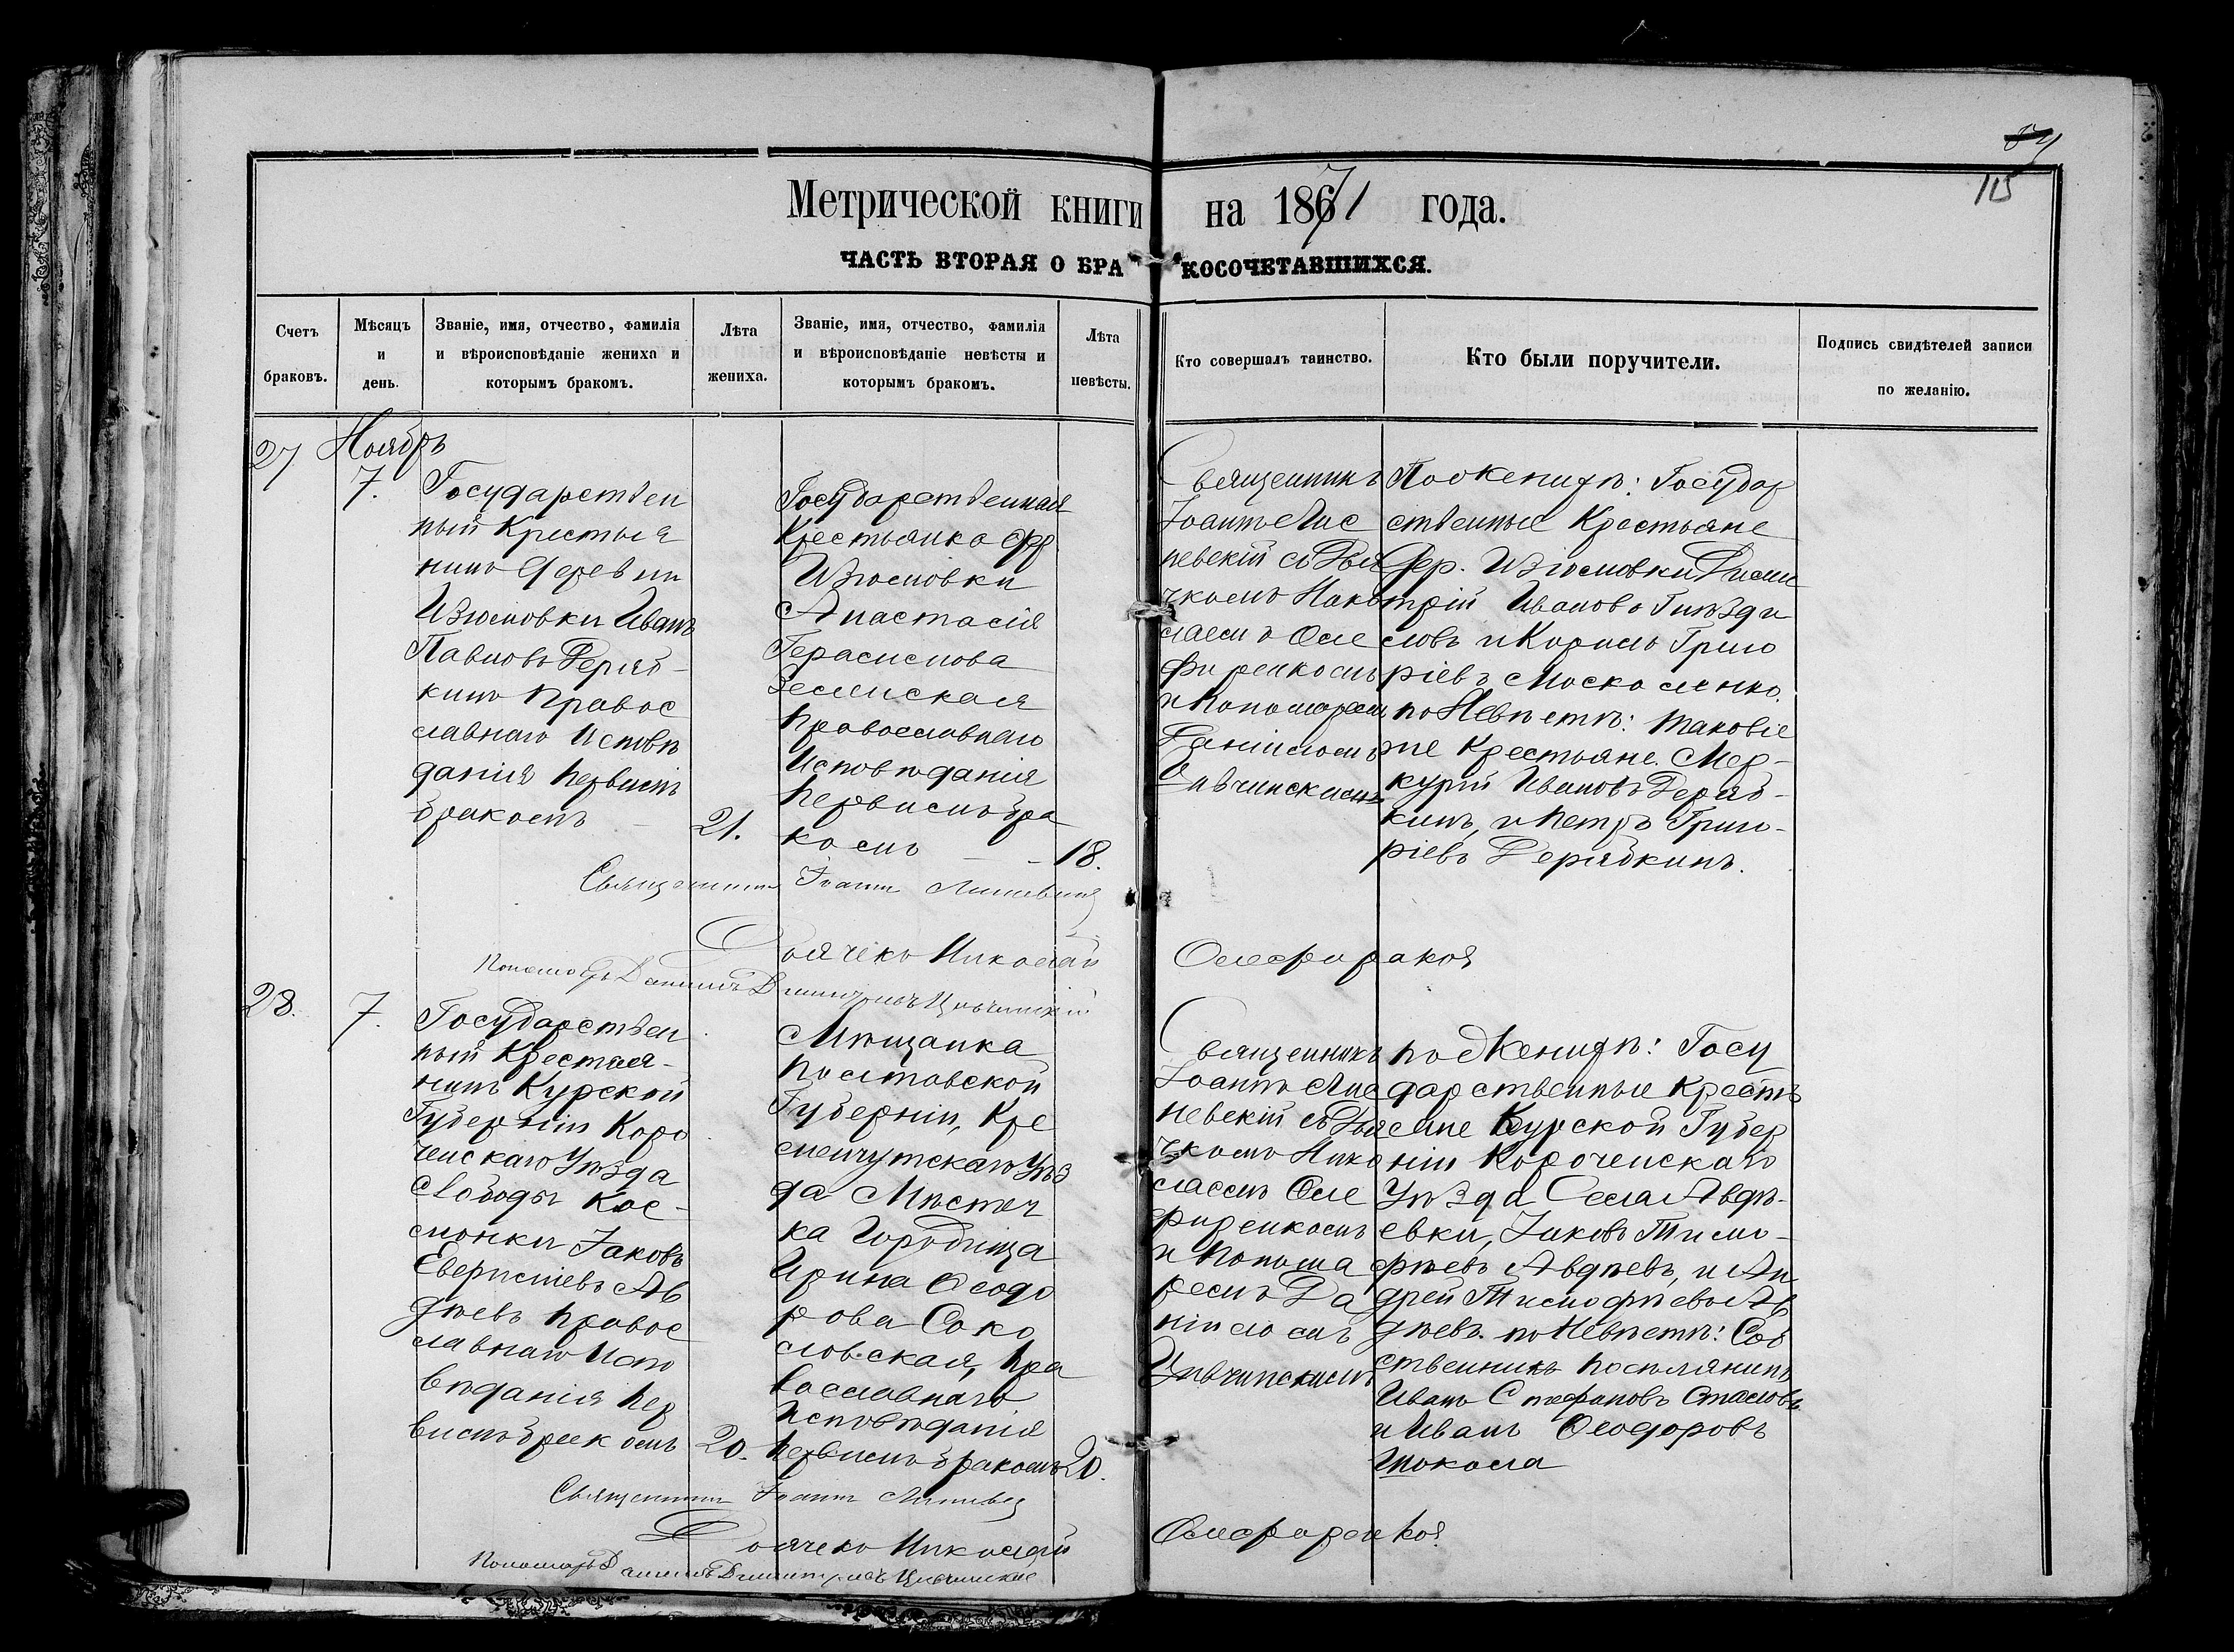 115
Метрической книги на 1871 года.
ЧАСТЬ ВТОРАЯ О БРАКОСОЧЕТАВШИХСЯ.
Счетъ
браковъ.
Мѣсяцъ
и
день.
Званіе, имя, отчество, фамилія
и вѣроисповѣданіе жениха и
которымъ бракомъ.
Лѣта
жениха.
Званіе, имя, отчество, фамилія
и вѣроисповѣданіе невѣсты и
которымъ бракомъ.
Лѣта
невѣсты.
Кто совершалъ таинство.
Кто были поручители.
Подпись свидѣтелей записи
по желанію.
27
Ноябрь
7.
Государствен
ный Крестья
нинъ деревни
Изюмовки Иванъ
Павловъ Деряб-
кинъ Правос
лавнаго Исповѣ
данія первымъ
бракомъ
21.
Государственная
Крестьянка дер
Изюмовки
Анастасія
Герасимова
Православнаго
Исповѣданія
первымъ бра
комъ
18.
Священникъ
Іоаннъ Лис
невскій съ Дья
чкомъ Нико
лаемъ Оле
ференкомъ
и Пономаремъ
Даніиломъ
Цивчинскимъ
По Женихѣ: Государ
ственные Крестьяне
Дер. Изюмовки Дими
трій Ивановъ Гнѣзди
ловъ и Карпъ Григо
ріевъ Москаленко.
по Невѣстѣ: таковіе
же Крестьяне. Мер-
курій Ивановъ Деряб-
кинъ, и Петръ Григо-
ріевъ Дерябкинъ.
Священникъ Іоаннъ
Дьячекъ Николай
Пономарь Даніилъ Димитріевъ Цивчинскій
28.
7.
Государствен
ный Крестья-
нинъ Курской
Губерніи Коро
ченскаго Уѣзда
Слободы
Іаковъ
Ав
дѣевъ Правос
лавнаго Испо
вѣданія Пер
вымъ бракомъ
20.
Мѣщанка
Полтавской
Губерніи, Кре
менчугскаго Уѣз
да Мѣстеч
ка Городища
Ирина Ѳеодо
рова Соко
ловская, Пра
вославнаго
Исповѣданія
первымъ бракомъ
20.
Священникъ
невскій съ Дья
чкомъ Нико
лаемъ Оле
ференкомъ
и Понома
ремъ Да
ніиломъ
Цивчинскимъ
по Женихѣ: Госу
дарственные Кресть
яне Курской Губер
ніи Короченскаго
Уѣзда Села Авдѣ-
евки, Іаковъ Тимо-
фѣевъ Авдѣевъ, и Ан
дрей Тимофѣевъ Ав
дѣевъ. по Невѣстѣ: Соб
ственникъ поселянинъ
Иванъ Стефановъ
и Иванъ Ѳеодоровъ
Священникъ Іоаннъ
Дьячекъ Николай
Пономарь Даніилъ Димитріевъ Цивчинскій